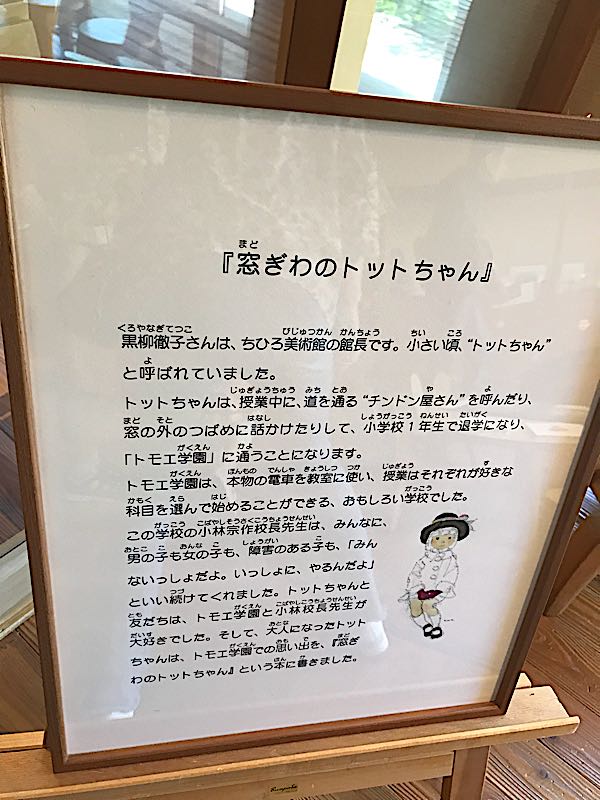 『窓ぎわのトットちゃん』
黒柳徹子さんは、ちひろ美術館の館長です。小さい頃、“トットちゃん”
と呼ばれていました。
トットちゃんは、授業中に、道を通る“チンドン屋さん”を呼んだり、
窓の外のつばめに話かけたりして、小学校1年生で退学になり、
「トモエ学園」に通うことになります。
トモエ学園は、本物の電車を教室に使い、授業はそれぞれが好きな
科目を選んで始めることができる、おもしろい学校でした。
この学校の小林宗作校長先生は、みんなに、
男の子も女の子も、障害のある子も、「みん
ないっしょだよ。いっしょに、やるんだよ」
といい続けてくれました。トットちゃんと
友だちは、トモエ学園と小林校長先生が
大好きでした。そして、大人になったトット
ちゃんは、トモエ学園での思い出を、『窓ぎ
わのトットちゃん』という本に書きました。